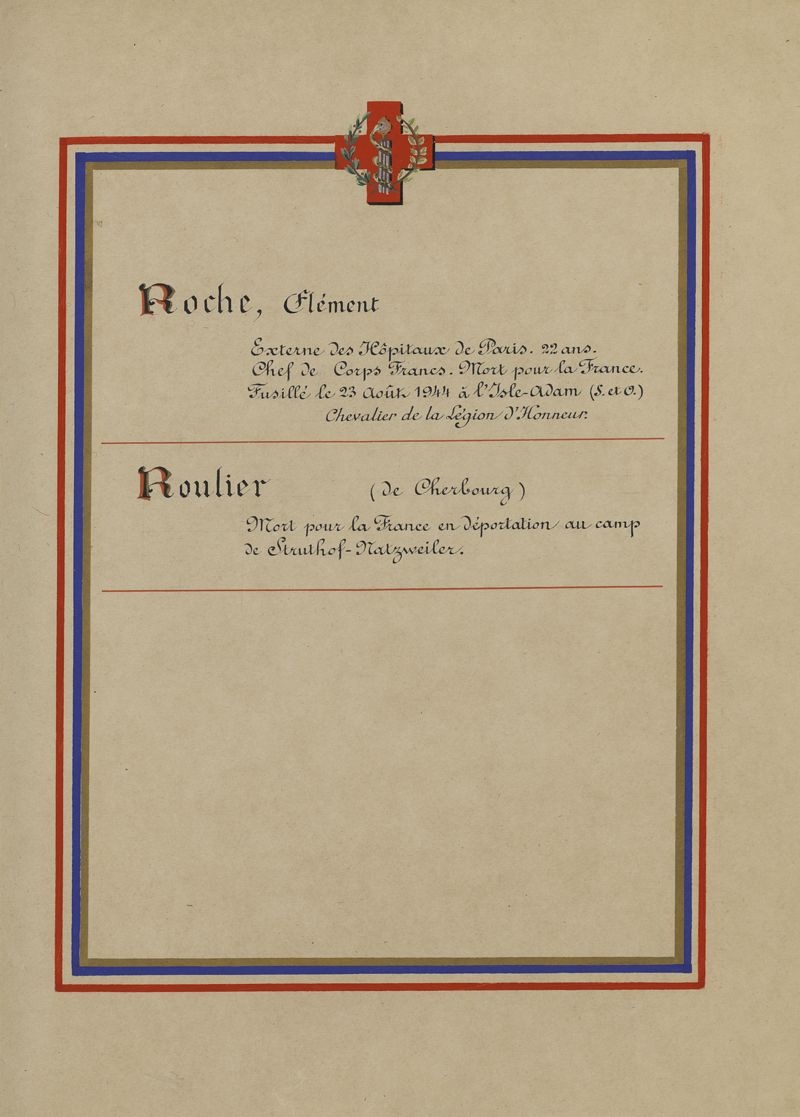 Roche, Clément
Externe des Hôpitaux de Paris. 22 ans.
Chef de Corps Francs. Mort pour la France.
Fusillé le 23 Août 1944 à l'Isle-Adam (S. et O.)
Chevalier de la Légion d'Honneur.
Roulier (de Cherbourg)
Mort pour la France en déportation au camp
de Struthof-Natzweiler.